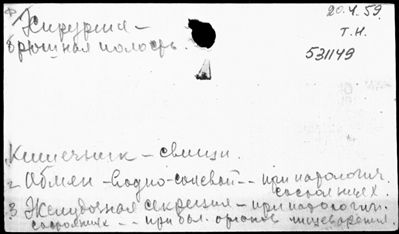 Хирургия –
брюшная полость.
20.4.59.
Т.Н.
531149
Кишечник – свищи.
2 Обмен – водно-солевой -- при патологич.
состояниях.
3 Желудочная секреция – при патологич.
состояниях -- при бол. органов пищеварения.